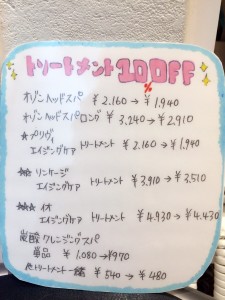 トリートメント10%OFF
オゾンヘッドスパ ¥2.160→¥1.940
オゾンヘッドスパロング ¥3.240→¥2.910
★プリヴィ
エイジングケア トリートメント ¥2.160→¥1.940
★★リンケージ
エイジングケア トリートメント ¥3.910→¥3.510
★★★イオ
エイジングケア トリートメント ¥4.930→¥4.430
炭酸クレンジングスパ
単品 ¥1.080→¥970
他トリートメント一緒 ¥540→¥480